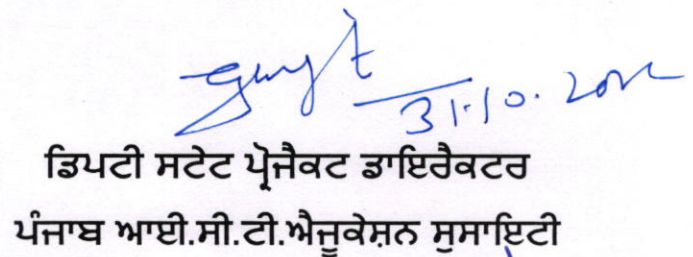 31.10.
ਡਿਪਟੀ ਸਟੇਟ ਪ੍ਰੋਜੈਕਟ ਡਾਇਰੈਕਟਰ
ਪੰਜਾਬ ਆਈ.ਸੀ.ਟੀ.ਐਜੂਕੇਸ਼ਨ ਸੁਸਾਇਟੀ